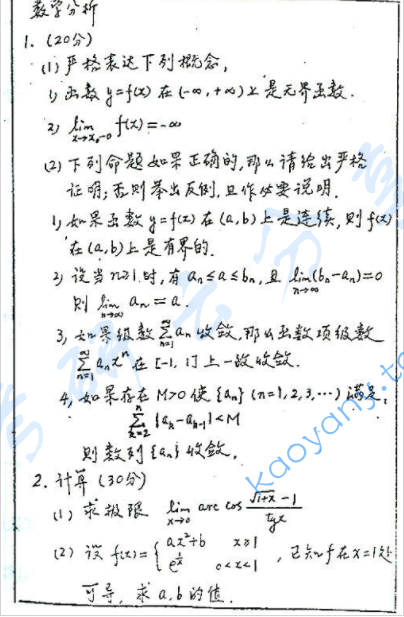 数学分析
1. (20分)
(1) 严格表达下列概念,
1) 函数 y=f(x) 在 (-∞, +∞) 上是无界函数.
2) lim_{x→x₀-0} f(x) = -∞
(2) 下列命题如果正确的,那么请给出严格
证明;否则举出反例,且作必要说明.
1) 如果函数 y=f(x) 在 (a,b) 上是连续,则 f(x)
在 (a,b) 上是有界的.
2) 设当 n≥1 时,有 aₙ≤a≤bₙ, 且 lim_{n→∞}(bₙ-aₙ)=0
则 lim_{n→∞} aₙ = a.
3, 如果级数 ∑_{n=1}^{∞} aₙ 收敛,那么函数项级数
∑_{n=1}^{∞} aₙxⁿ 在 [-1, 1] 上一致收敛.
4, 如果存在 M>0 使 {aₙ} (n=1,2,3,…) 满足,
∑_{k=2}^{n} |aₖ-aₖ₋₁| < M
则数列 {aₙ} 收敛.
2. 计算 (30分)
(1) 求极限 lim_{x→0} arc cos (√(1+x) - 1)/(tgx)
(2) 设 f(x) = { ax²+b x≥1
e^{1/x} 0<x<1 , 已知 f 在 x=1 处
可导, 求 a,b 的值.
kaoyang.to